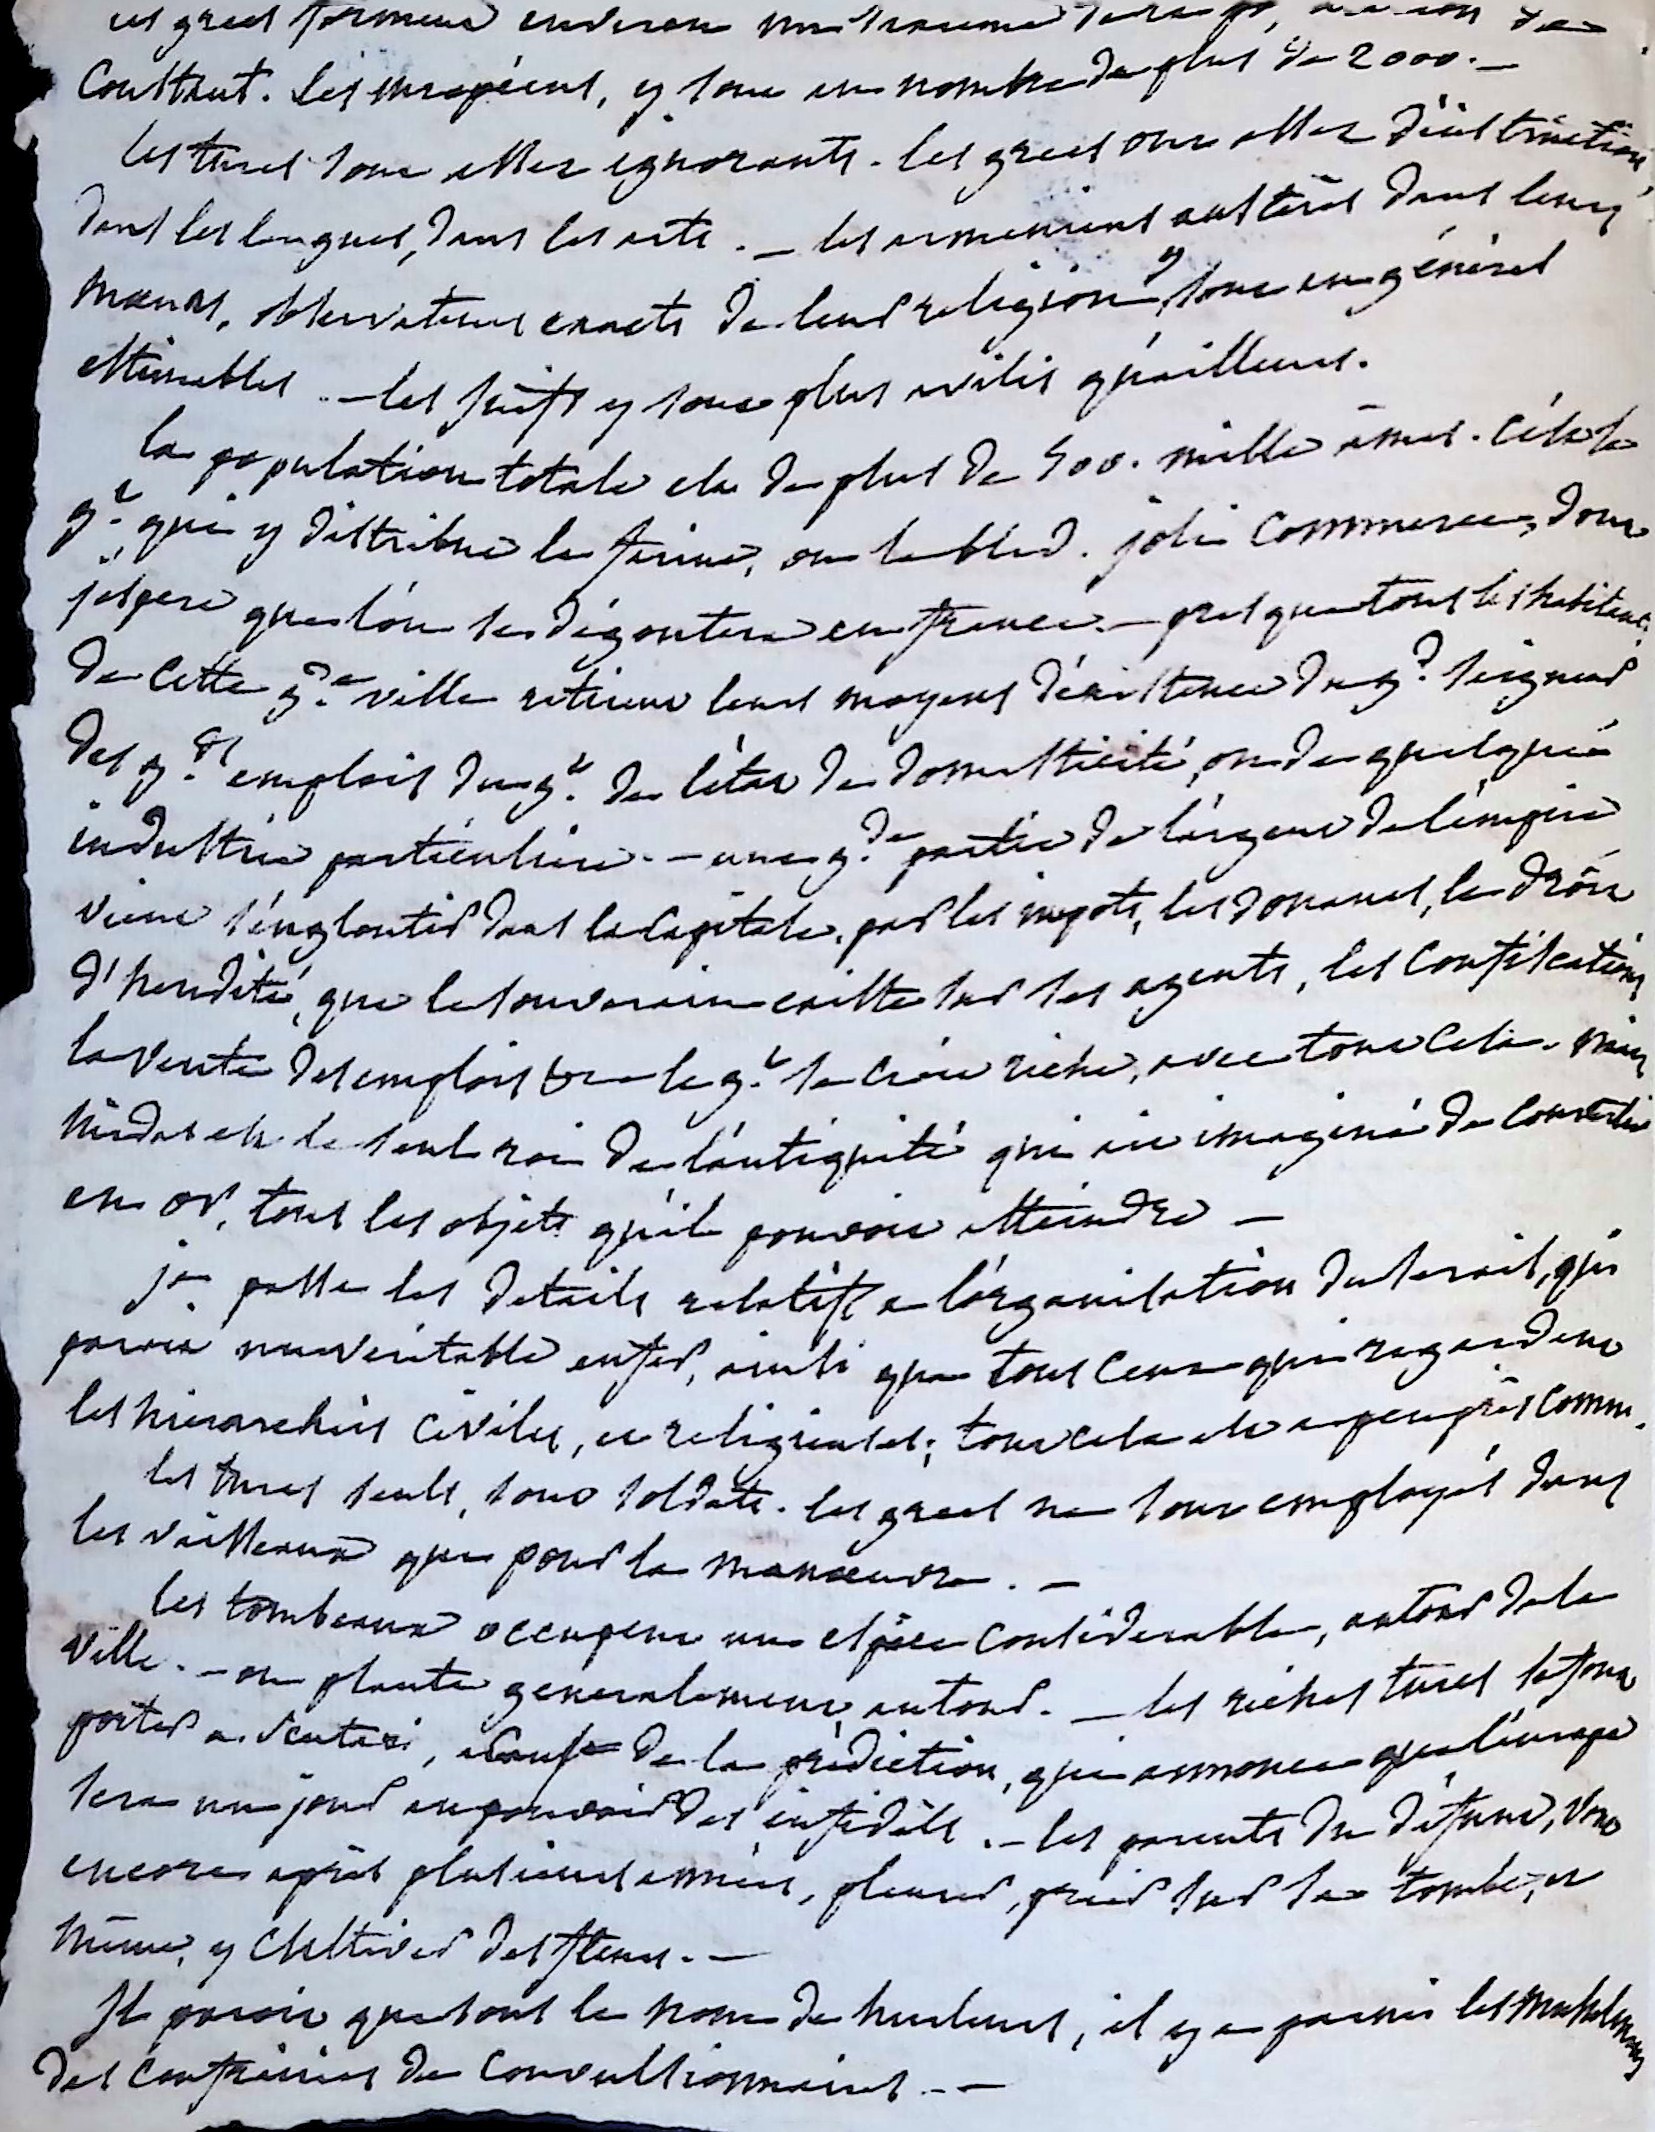 les grecs forment environ
Constant. les européens, y sont au nombre de plus de 2000. —
les turcs sont assez ignorants. les grecs ont assez d'instruction,
dans les langues, dans les arts. — les armeniens austères dans leurs
mœurs, observateurs exacts de leur religion, y sont en général
estimables. — les juifs y sont plus avilis qu'ailleurs.
la population totale est de plus de 500. mille âmes. c'est le
g.t qui y distribue la farine, ou le bled. joli commerce, dont
j'espere que l'on se dégoutera en france. — presque tous les habitans
de cette g.de ville retirent leurs moyens d'existence du g.d seigneur
des g.ds emplois du g.t de l'état de domesticité, ou de quelque
industrie particulière. — une g.de partie de l'argent de l'empire
vient s'engloutir dans la capitale, par les impots, les douanes, le droit
d'heredité, que le souverain exerce sur ses agents, les confiscations
la vente des emplois &c — le g.t se croit riche, avec tout cela. mais
midas est le seul roi de l'antiquité qui ait imaginé de convertir
en or, tous les objets qu'il pouvoit atteindre —
je passe les details relatifs a l'organisation du serail, qui
paroit un véritable enfer, ainsi que tous ceux qui regardent
les hierarchies civiles, et religieuses; tout cela est a peu près connu.
les turcs seuls, sont soldats. les grecs ne sont employés dans
les vaisseaux que pour la manœuvre. —
les tombeaux occupent un espace considerable, autour de la
ville. — on plante generalement autour. — les riches turcs se font
porter a scutari, a cause de la prédiction, qui annonce que l'europe
sera un jour au pouvoir des infidèles. — les parents du défunt, vont
encore après plusieurs années, pleurer, prier sur sa tombe, et
même, y cultiver des fleurs. —
Il paroit que sous le nom de hurleurs, il y a parmi les musulmans
des confréries de convulsionnaires. —